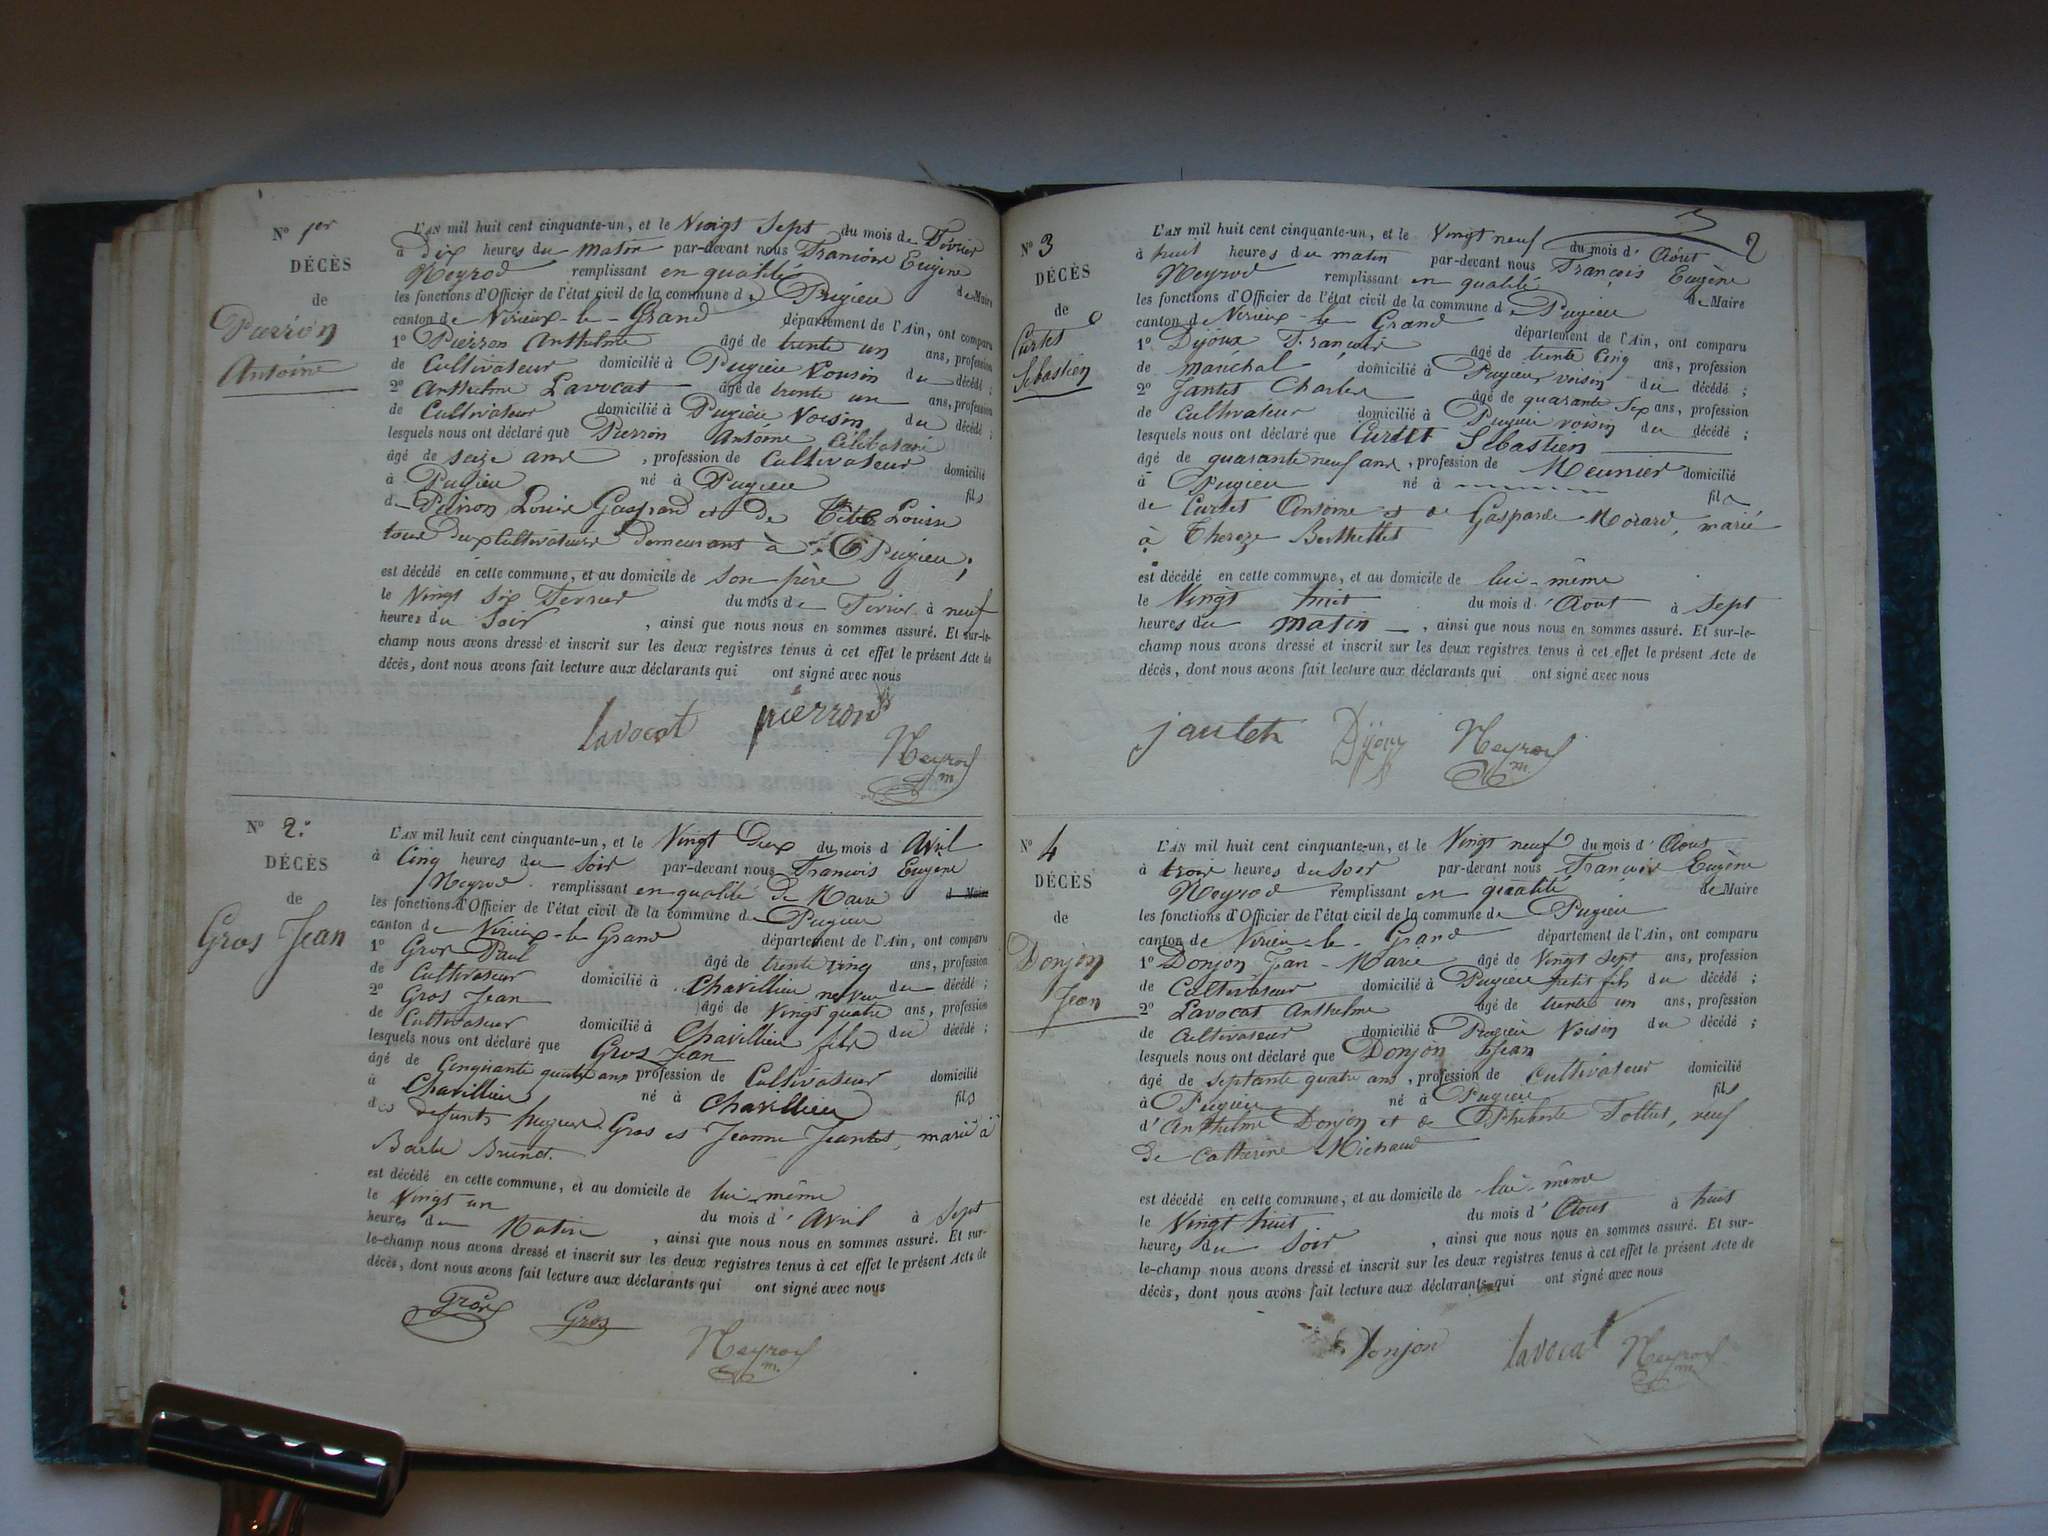 N° 1er
DÉCÈS
de
Pierron
Antoine
L'AN mil huit cent cinquante-un, et le Vingt Sept du mois de Février
à dix heures du matin par-devant nous François Eugène
Neyrod remplissant en qualité de Maire
les fonctions d'Officier de l'état civil de la commune de Pugieu
canton de Virieux-le-Grand département de l'Ain, ont comparu
1° Pierron Anthelme âgé de trente un ans, profession
de Cultivateur domicilié à Pugieu Cousin du décédé ;
2° Anthelme Lavocat âgé de trente un ans, profession
de Cultivateur domicilié à Pugieu Voisin du décédé ;
lesquels nous ont déclaré que Pierron Antoine Célibataire
âgé de seize ans, profession de Cultivateur domicilié
à Pugieu né à Pugieu fils
de Pierron Louis Gaspard et de Louise
tous deux Cultivateurs demeurant à Pugieu ;
est décédé en cette commune, et au domicile de son père
le Vingt Six Fevrier du mois de Fevrier à neuf
heures du Soir, ainsi que nous nous en sommes assuré. Et sur-le-
champ nous avons dressé et inscrit sur les deux registres tenus à cet effet le présent Acte de
décès, dont nous avons fait lecture aux déclarants qui ont signé avec nous
lavocat pierron
Neyrod
m.
N° 2.
DÉCÈS
de
Gros Jean
L'AN mil huit cent cinquante-un, et le Vingt Deux du mois d Avril
à Cinq heures du Soir par-devant nous François Eugène
Neyrod remplissant en qualité de Maire d Maire
les fonctions d'Officier de l'état civil de la commune de Pugieu
canton de Virieux-le-Grand département de l'Ain, ont comparu
1° Gros Paul âgé de trente cinq ans, profession
de Cultivateur domicilié à Chavillieu neveu du décédé ;
2° Gros Jean âgé de Vingt quatre ans, profession
de Cultivateur domicilié à Chavillieu fils du décédé ;
lesquels nous ont déclaré que Gros Jean
âgé de Cinquante quatre ans profession de Cultivateur domicilié
à Chavillieu né à Chavillieu fils
des defunts hugues Gros et Jeanne Jeantet, marié à
Barbe Brunet.
est décédé en cette commune, et au domicile de lui-même
le Vingt un du mois d'Avril à Sept
heures du Matin, ainsi que nous nous en sommes assuré. Et sur-
le-champ nous avons dressé et inscrit sur les deux registres tenus à cet effet le présent Acte de
décès, dont nous avons fait lecture aux déclarants qui ont signé avec nous
Gros Gros
Neyrod
m.
2
N° 3
DÉCÈS
de
Curtet
Sébastien
L'AN mil huit cent cinquante-un, et le Vingt neuf du mois d'Août
à huit heures du matin par-devant nous François Eugène
Neyrod remplissant en qualité de Maire
les fonctions d'Officier de l'état civil de la commune de Pugieu
canton de Virieux-le-Grand département de l'Ain, ont comparu
1° Dijoux François âgé de trente Cinq ans, profession
de maréchal domicilié à Pugieu voisin du décédé ;
2° Jantet Charles âgé de quarante Six ans, profession
de Cultivateur domicilié à Pugieu voisin du décédé ;
lesquels nous ont déclaré que Curtet Sébastien
âgé de quarante neuf ans, profession de Meunier domicilié
à Pugieu né à fils
de Curtet Antoine et de Gasparde Morard, marié
à Thereze Berthellet
est décédé en cette commune, et au domicile de lui-même
le Vingt huit du mois d'Aout à Sept
heures du matin, ainsi que nous nous en sommes assuré. Et sur-le-
champ nous avons dressé et inscrit sur les deux registres tenus à cet effet le présent Acte de
décès, dont nous avons fait lecture aux déclarants qui ont signé avec nous
jantet Dijoux Neyrod
m.
N° 4
DÉCÈS
de
Donjon
Jean
L'AN mil huit cent cinquante-un, et le Vingt neuf du mois d'Aout
à trois heures du soir par-devant nous François Eugène
Neyrod remplissant en qualité de Maire
les fonctions d'Officier de l'état civil de la commune de Pugieu
canton de Virieu-le-Grand département de l'Ain, ont comparu
1° Donjon Jean-Marie âgé de Vingt Sept ans, profession
de Cultivateur domicilié à Pugieu petit fils du décédé ;
2° Lavocat Anthelme âgé de trente un ans, profession
de Cultivateur domicilié à Pugieu Voisin du décédé ;
lesquels nous ont déclaré que Donjon Jean
âgé de Septante quatre ans, profession de Cultivateur domicilié
à Pugieu né à Pugieu fils
d'Anthelme Donjon et de Philiberte Tollet, veuf
de Catherine Michaud
est décédé en cette commune, et au domicile de lui-même
le Vingt huit du mois d'Aout à huit
heures du Soir, ainsi que nous nous en sommes assuré. Et sur-
le-champ nous avons dressé et inscrit sur les deux registres tenus à cet effet le présent Acte de
décès, dont nous avons fait lecture aux déclarants qui ont signé avec nous
Donjon lavocat Neyrod
m.